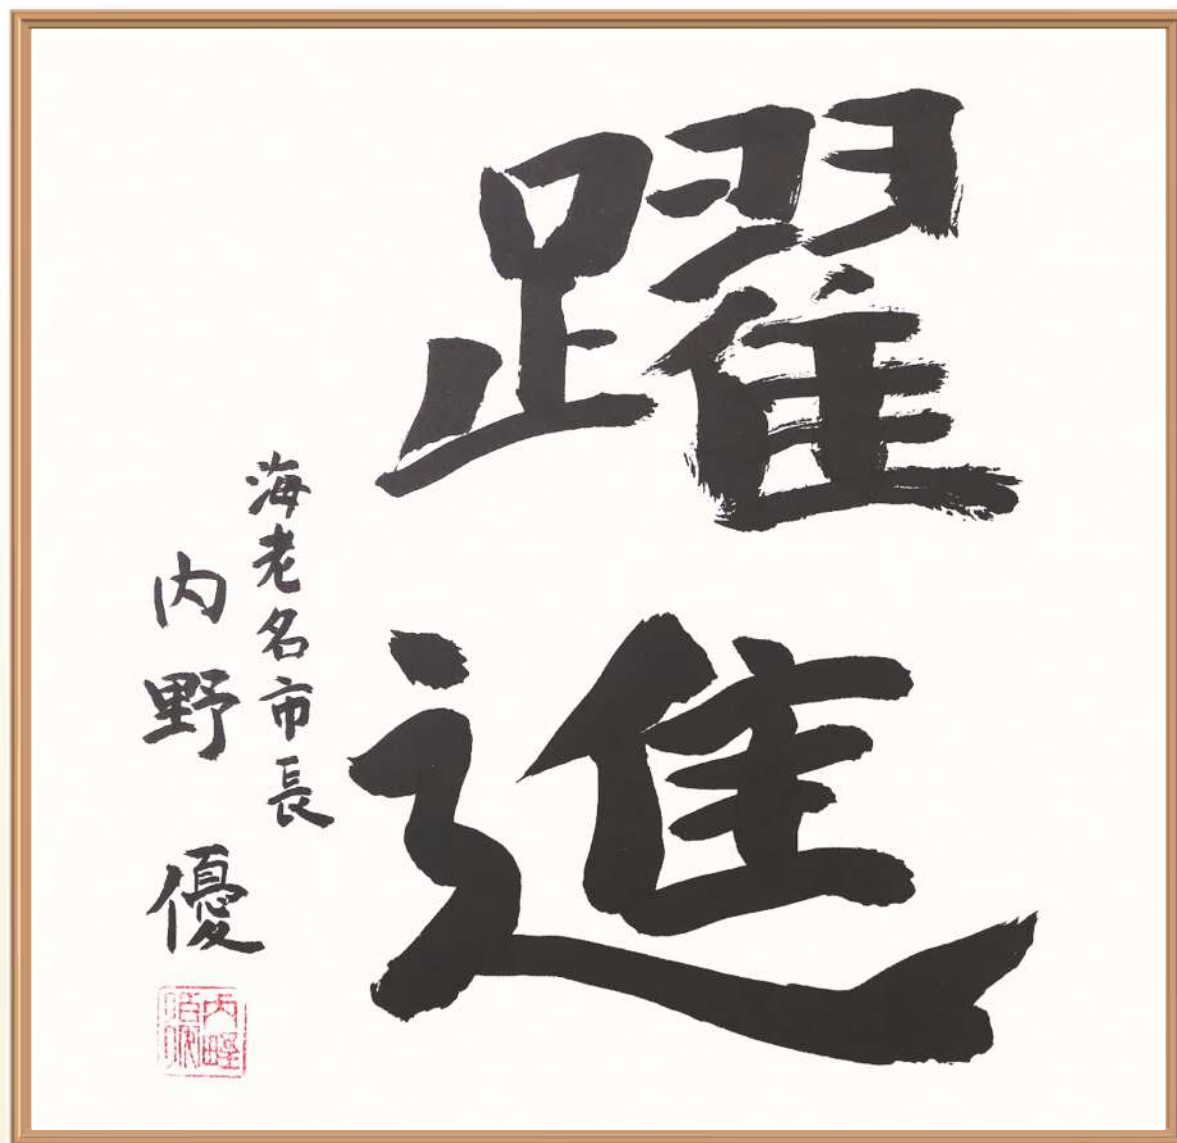 躍進
海老名市長
内野優
内野